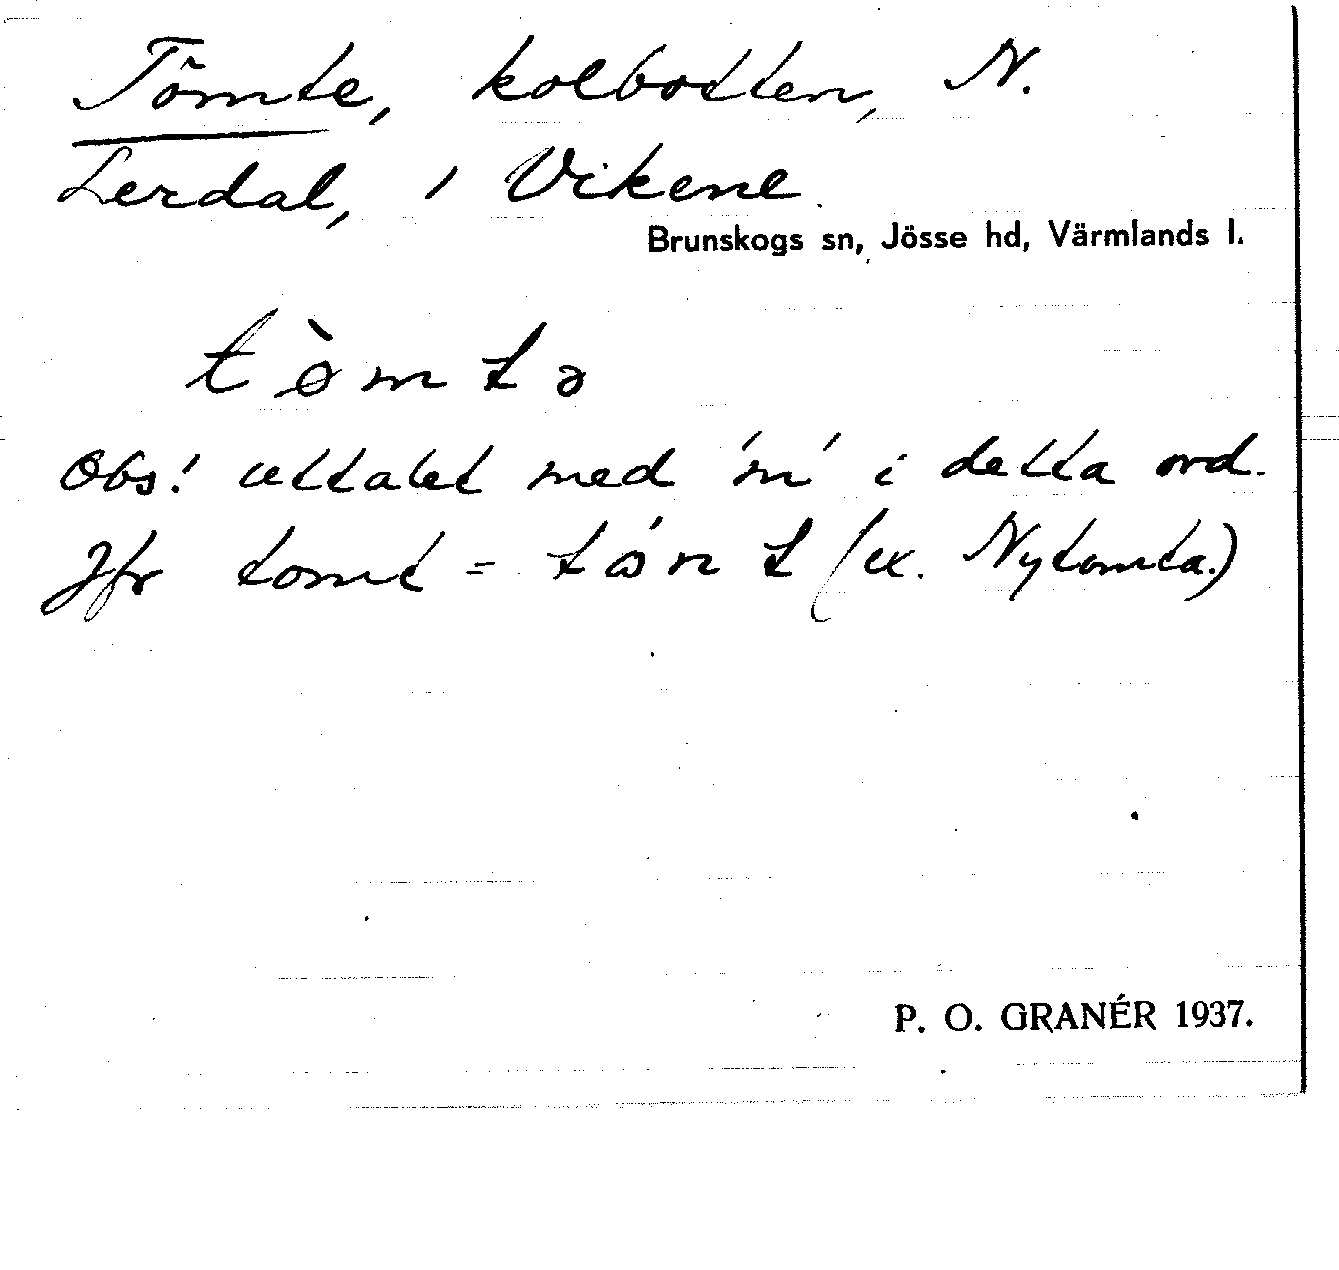 Tömte, kolbotten, N.
Lerdal, 1 Vikene.
Brunskogs sn, Jösse hd, Värmlands l.
tø̀mtə
Obs! uttalet med 'm' i detta ord.
Jfr tomt = tómt (ex. Nytomta.)
P. O. GRANÉR 1937.